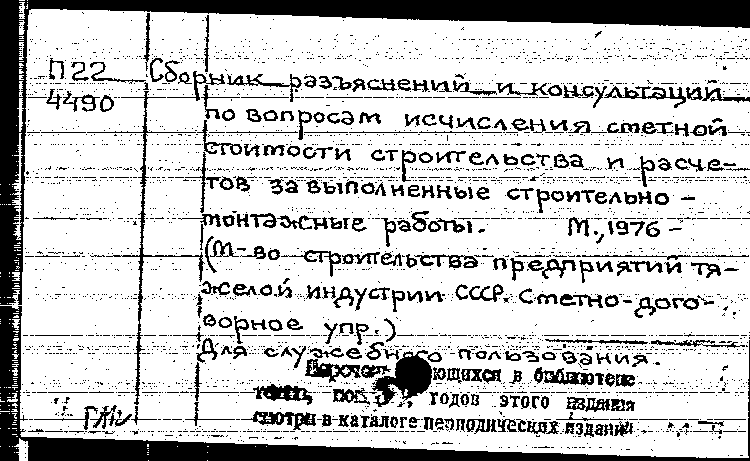 П22 Сборник разъяснений и консультаций
4490 по вопросам исчисления сметной
стоимости строительства и расче-
тов за выполненные строительно-
монтажные работы. М., 1976 -
(М-во строительства предприятий тя-
желой индустрии СССР. Сметно-дого-
ворное упр.)
Для служебного пользования.
ющихся в библиотеке
годов этого издания
смотри в каталоге периодических изданий